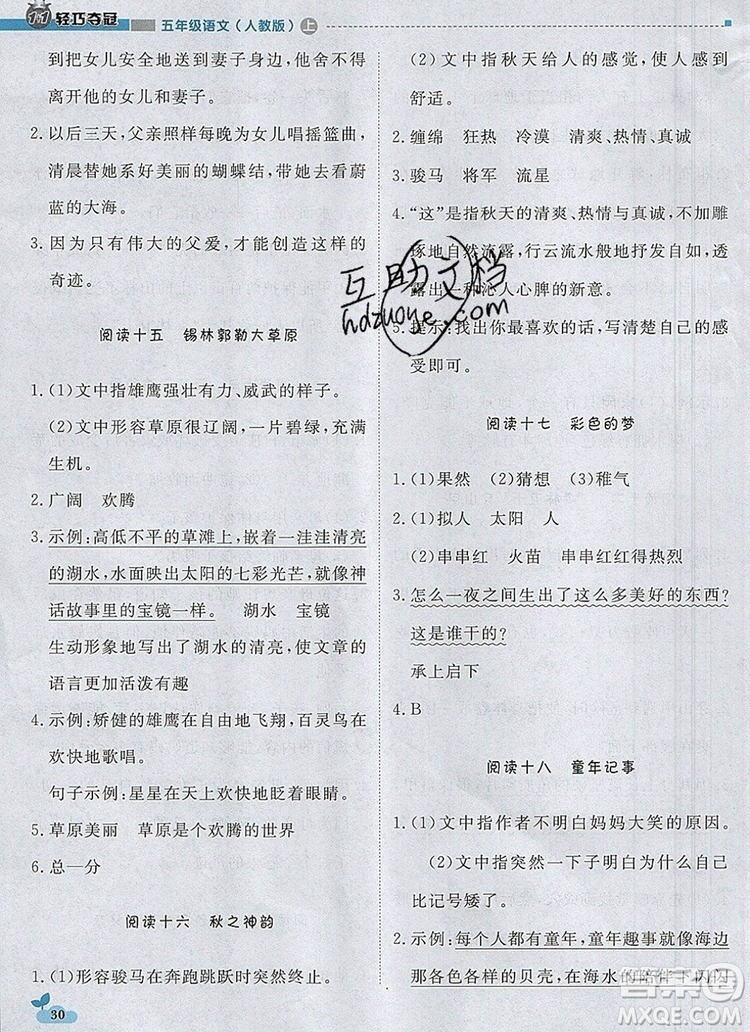 1+1 轻巧夺冠 五年级语文（人教版）上
到把女儿安全地送到妻子身边，他舍不得
离开他的女儿和妻子。
2. 以后三天，父亲照样每晚为女儿唱摇篮曲，
清晨替她系好美丽的蝴蝶结，带她去看蔚
蓝的大海。
3. 因为只有伟大的父爱，才能创造出如此的
奇迹。
阅读十五 锡林郭勒大草原
1. (1)文中指雄鹰强壮有力、威武的样子。
(2)文中形容草原很辽阔，一片碧绿，充满
生机。
2. 广阔 欢腾
3. 示例：高低不平的草滩上，嵌着一洼洼清亮
的湖水，水面映出太阳的七彩光芒，就像神
话故事里的宝镜一样。 湖水 宝镜
生动形象地写出了湖水的清亮，使文章的
语言更加活泼有趣
4. 示例：矫健的雄鹰在自由地飞翔，百灵鸟在
欢快地歌唱。
句子示例：星星在天上欢快地眨着眼睛。
5. 草原美丽 草原是个欢腾的世界
6. 总—分
阅读十六 秋之神韵
1. (1)形容骏马在奔跑跳跃时突然终止。
30
(2)文中指秋天给人的感觉，使人感到
舒适。
2. 缠绵 狂热 冷漠 清爽、热情、真诚
3. 骏马 将军 流星
4. “这”是指秋天的清爽、热情与真诚，不加雕
琢地自然流露，行云流水般地抒发自如，透
露出一种沁人心脾的新意。
5. 提示：找出你最喜欢的话，写清楚自己的感
受即可。
阅读十七 彩色的梦
1. (1)果然 (2)猜想 (3)稚气
2. (1)拟人 太阳 人
(2)串串红 火苗 串串红开得红
3. 怎么一夜之间生出了这么多美好的东西？
这是谁干的？
承上启下
4. B
阅读十八 童年记事
1. (1)文中指作者不明白妈妈大笑的原因。
(2)文中指突然一下子明白为什么自己
比记号矮了。
2. 示例：每个人都有童年，童年趣事就像海边
那些五颜六色的贝壳，在海水的陪伴下闪闪
互助文档
hdzuoye.com
答案圈
MXQE.COM